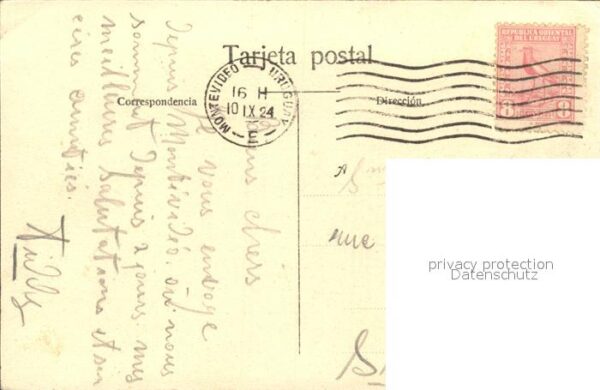 Tarjeta postal
Correspondencia
Dirección
REPUBLICA ORIENTAL
DEL URUGUAY
8 8
MONTEVIDEO URUGUAY
16 H
10 IX 24
Biens chers
Je vous envoie
depuis Montévidéo, où nous
sommes depuis 2 jours mes
meilleures salutations et sin
cères amitiés.
Willy
rue
privacy protection
Datenschutz